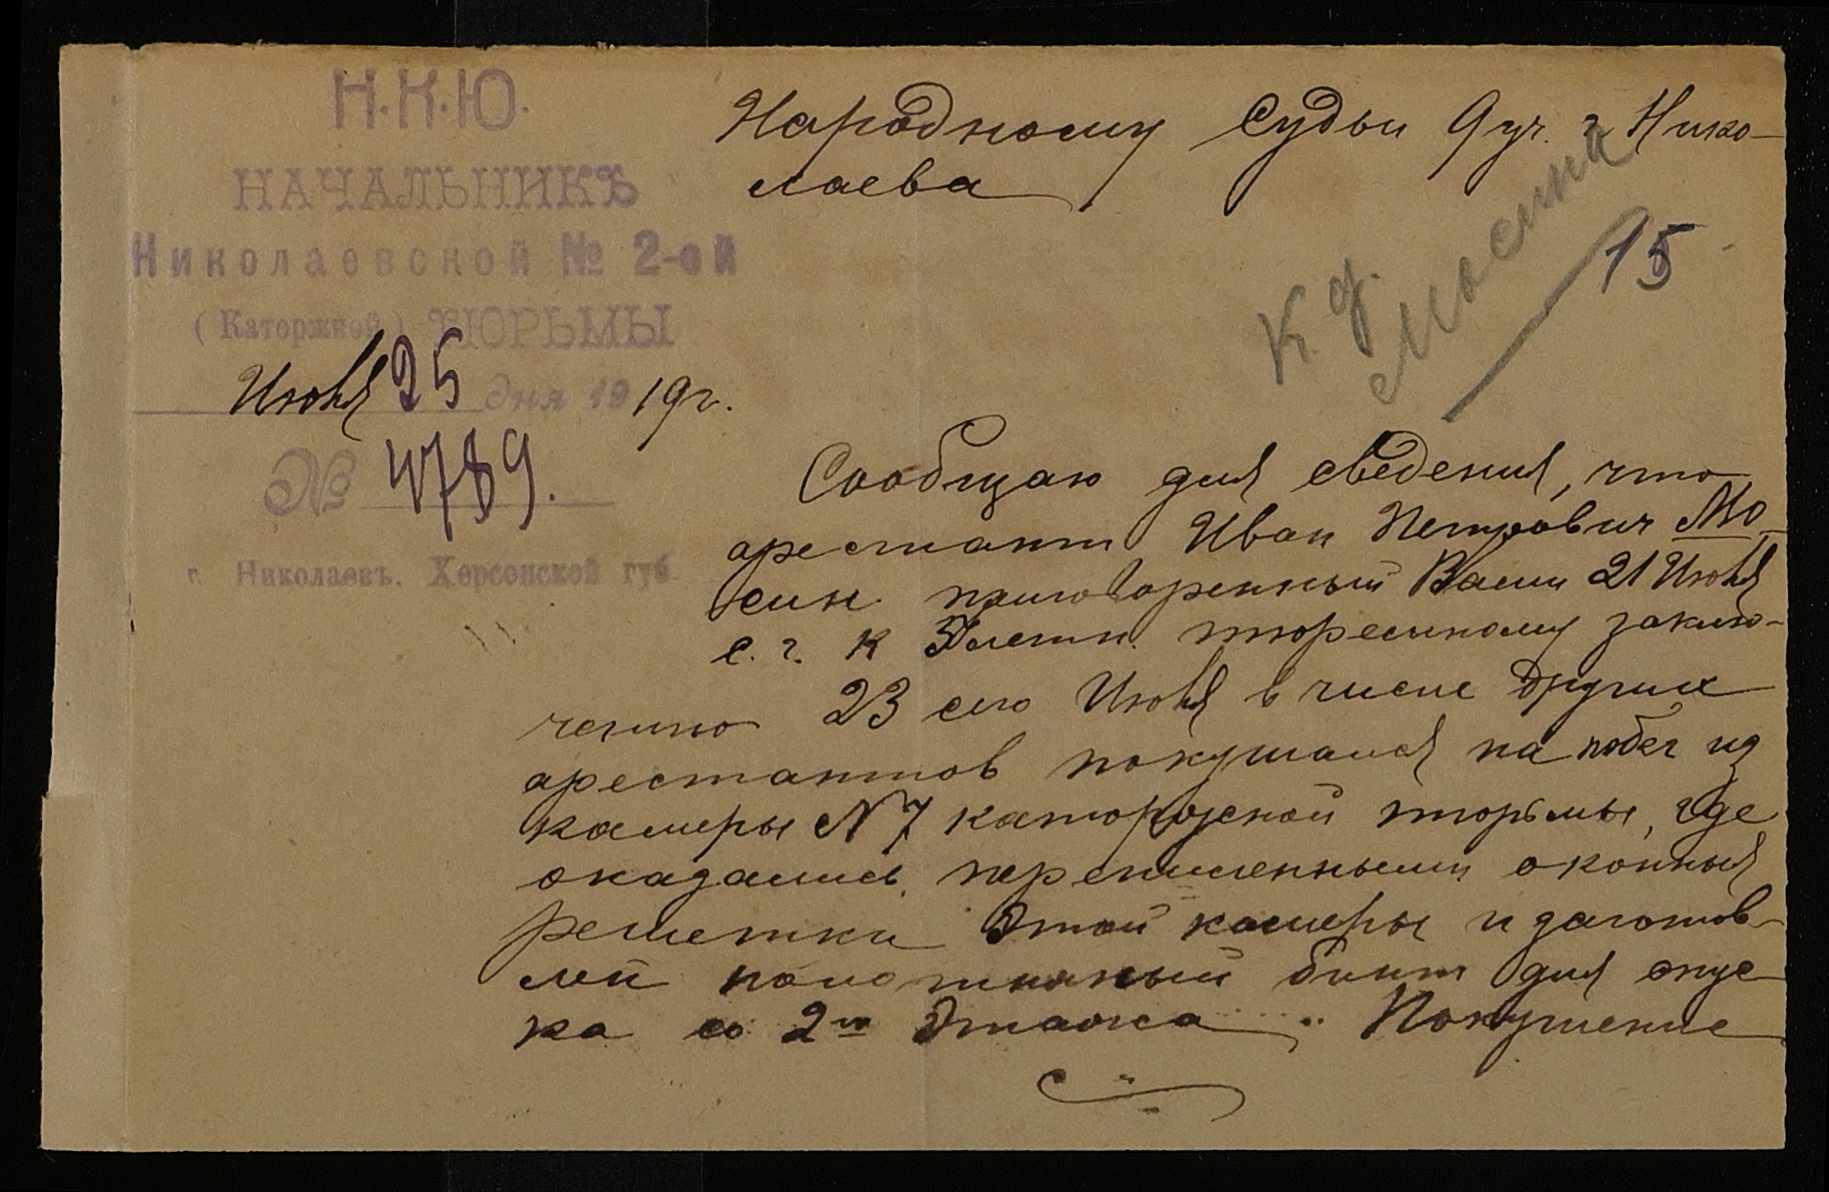 Н.К.Ю.
НАЧАЛЬНИКЪ
Николаевской № 2-ой
(Каторжной) ТЮРЬМЫ
Июня 25 дня 1919г.
№ 4789.
г. Николаевъ, Херсонской губ.
Народному Судьи 9 уч. г Нико-
лаева
К д. Мосина
15
Сообщаю для сведения, что
арестант Иван Петрович Мо-
син приговоренный Вами 21 Июня
с. г. к 5 летн. тюремному заклю-
чению 23 сего Июня в числе других
арестантов покушался на побег из
камеры N 7 каторжной тюрьмы, где
оказались перепиленными оконныя
решетки этой камеры и заготов-
лен полотняный бинт для спус-
ка со 2го этажа. Покушение